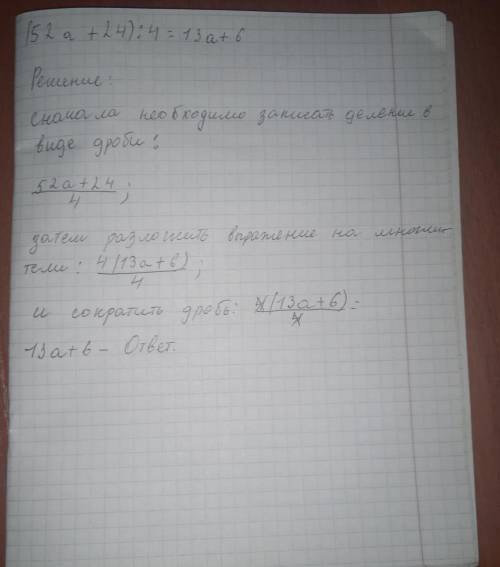 (52a + 24) : 4 = 13a + 6
Решение:
сначала необходимо записать деление в
виде дроби:
52a+24
4 ;
затем разложить выражение на множи-
тели: 4(13a+6)
4 ;
и сократить дробь: 4(13a+6) =
4
13a+6 - Ответ.